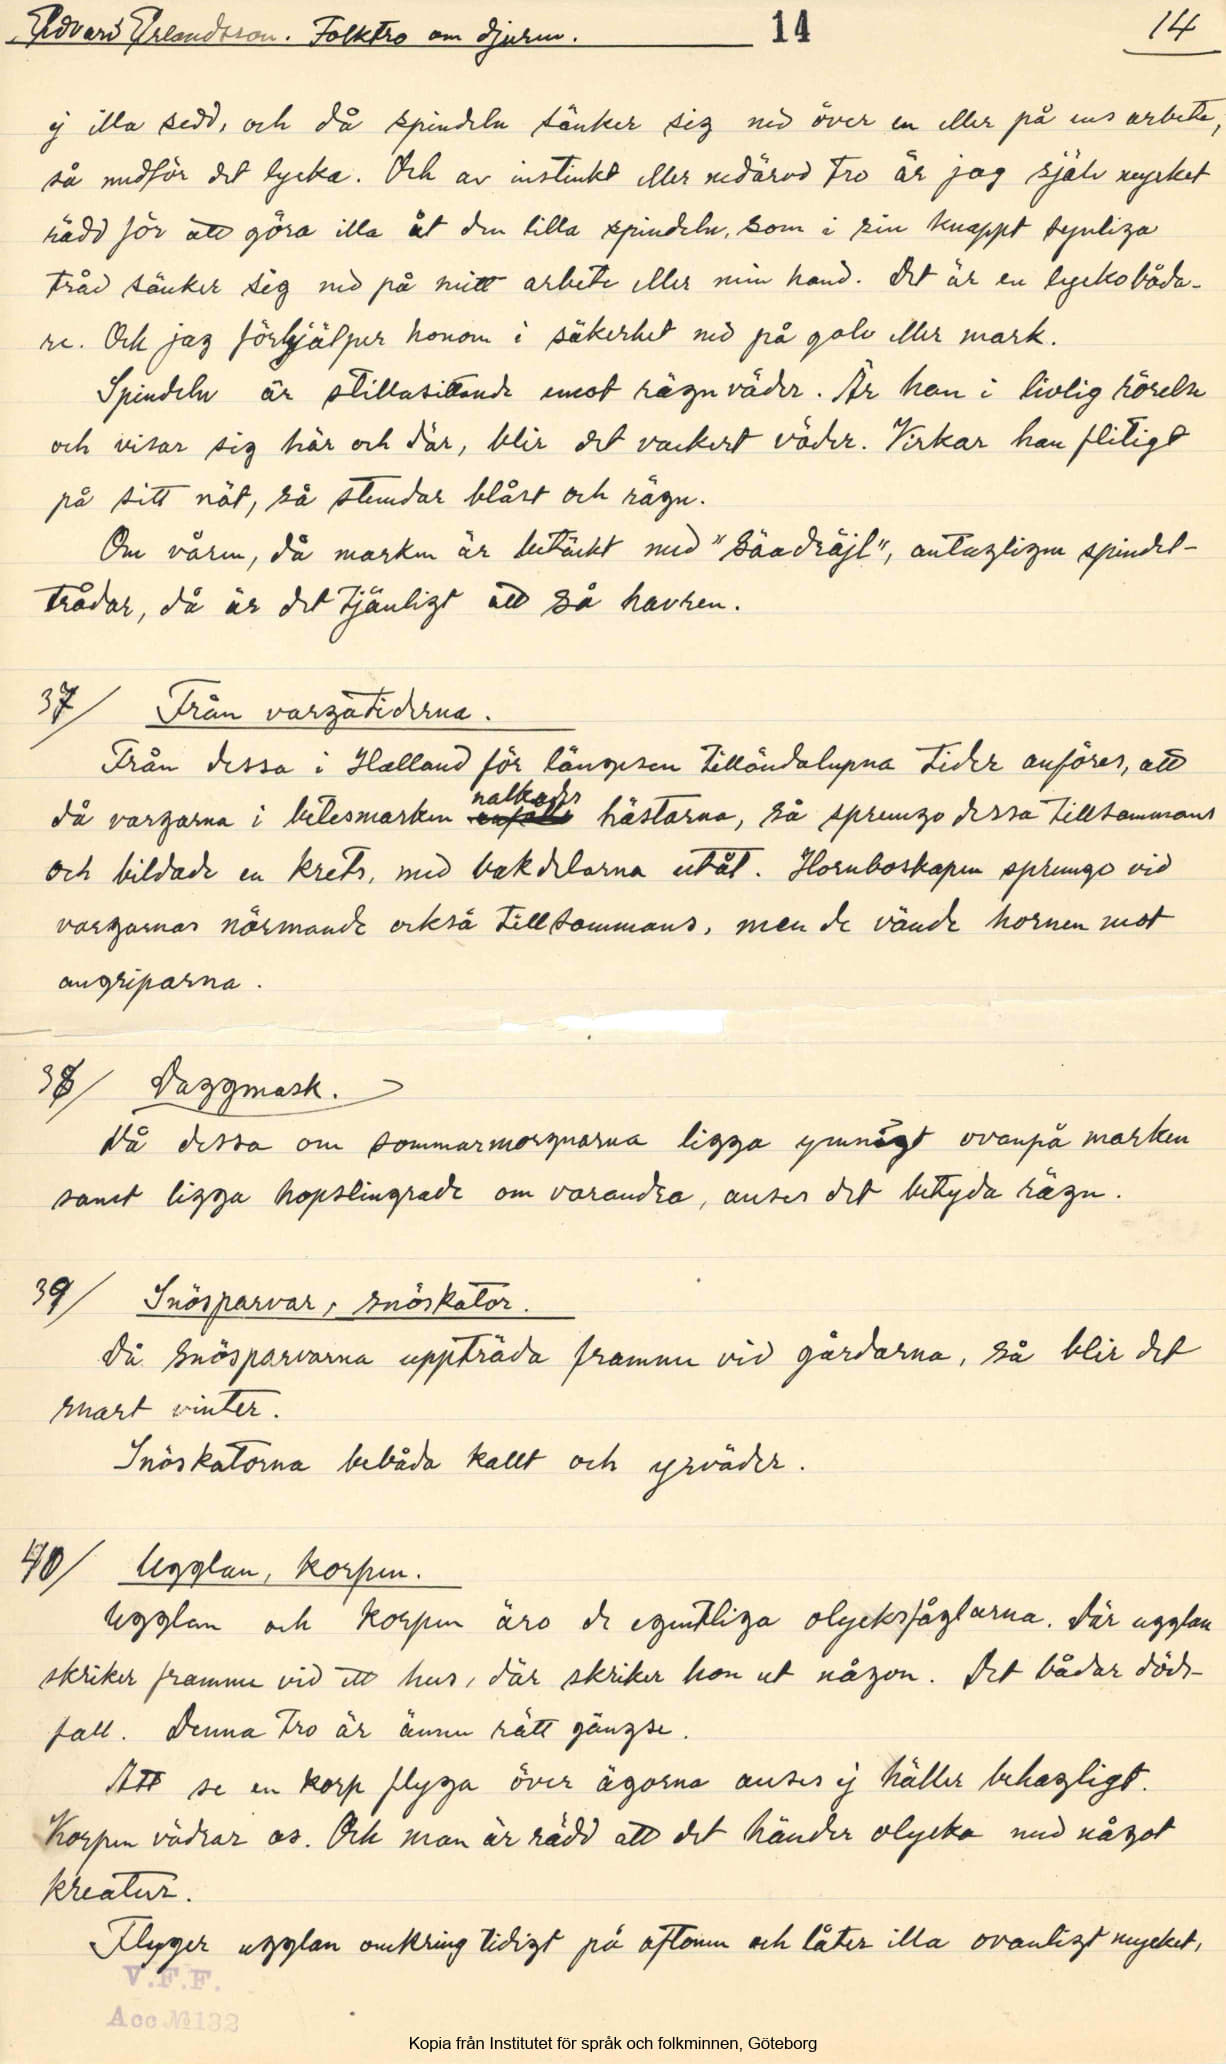 Edvard Erlandsson. Folktro om djuren. 14 14
ej illa sedd, och då spindeln sänker sig ned över en eller på ens arbete,
så medför det lycka. Och av instinkt eller nedärvd tro är jag själv mycket
rädd för att göra illa åt den lilla spindeln, som i sin knappt synliga
tråd sänker sig ned på mitt arbete eller min hand. Det är en lyckobåda-
re. Och jag förhjälper honom i säkerhet ned på golv eller mark.
Spindeln är stillasittande emot rägnväder. Är han i livlig rörelse
och visar sig här och där, blir det vackert väder. Virkar han flitigt
på sitt nät, så stundar blåst och rägn.
Om våren, då marken är betäckt med "Såadräjl", antagligen spindel-
trådar, då är det tjänligt att så havren.
37/ Från vargatiderna.
Från dessa i Halland för längesen tilländalupna tider anföres, att
då vargarna i betesmarken nalkades hästarna, så sprungo dessa tillsammans
och bildade en krets, med bakdelarna utåt. Hornboskapen sprungo vid
vargarnas närmande också tillsammans, men de vände hornen mot
angriparna.
38/ Daggmask.
Då dessa om sommarmorgnarna ligga ymnigt ovanpå marken
samt ligga hopslingrade om varandra, anses det betyda rägn.
39/ Snösparvar, snöskator.
Då snösparvarna uppträda framme vid gårdarna, så blir det
snart vinter.
Snöskatorna bebåda kallt och yrväder.
40/ Ugglan, korpen.
Ugglan och korpen äro de egentliga olycksfåglarna. Där ugglan
skriker framme vid ett hus, där skriker hon ut någon. Det bådar döds-
fall. Denna tro är ännu rätt gängse.
Att se en korp flyga över ägorna anses ej häller behagligt.
Korpen vädrar as. Och man är rädd att det händer olycka med något
kreatur.
Flyger ugglan omkring tidigt på aftonen och låter illa ovanligt mycket,
V.F.F.
Acc № 132
Kopia från Institutet för språk och folkminnen, Göteborg